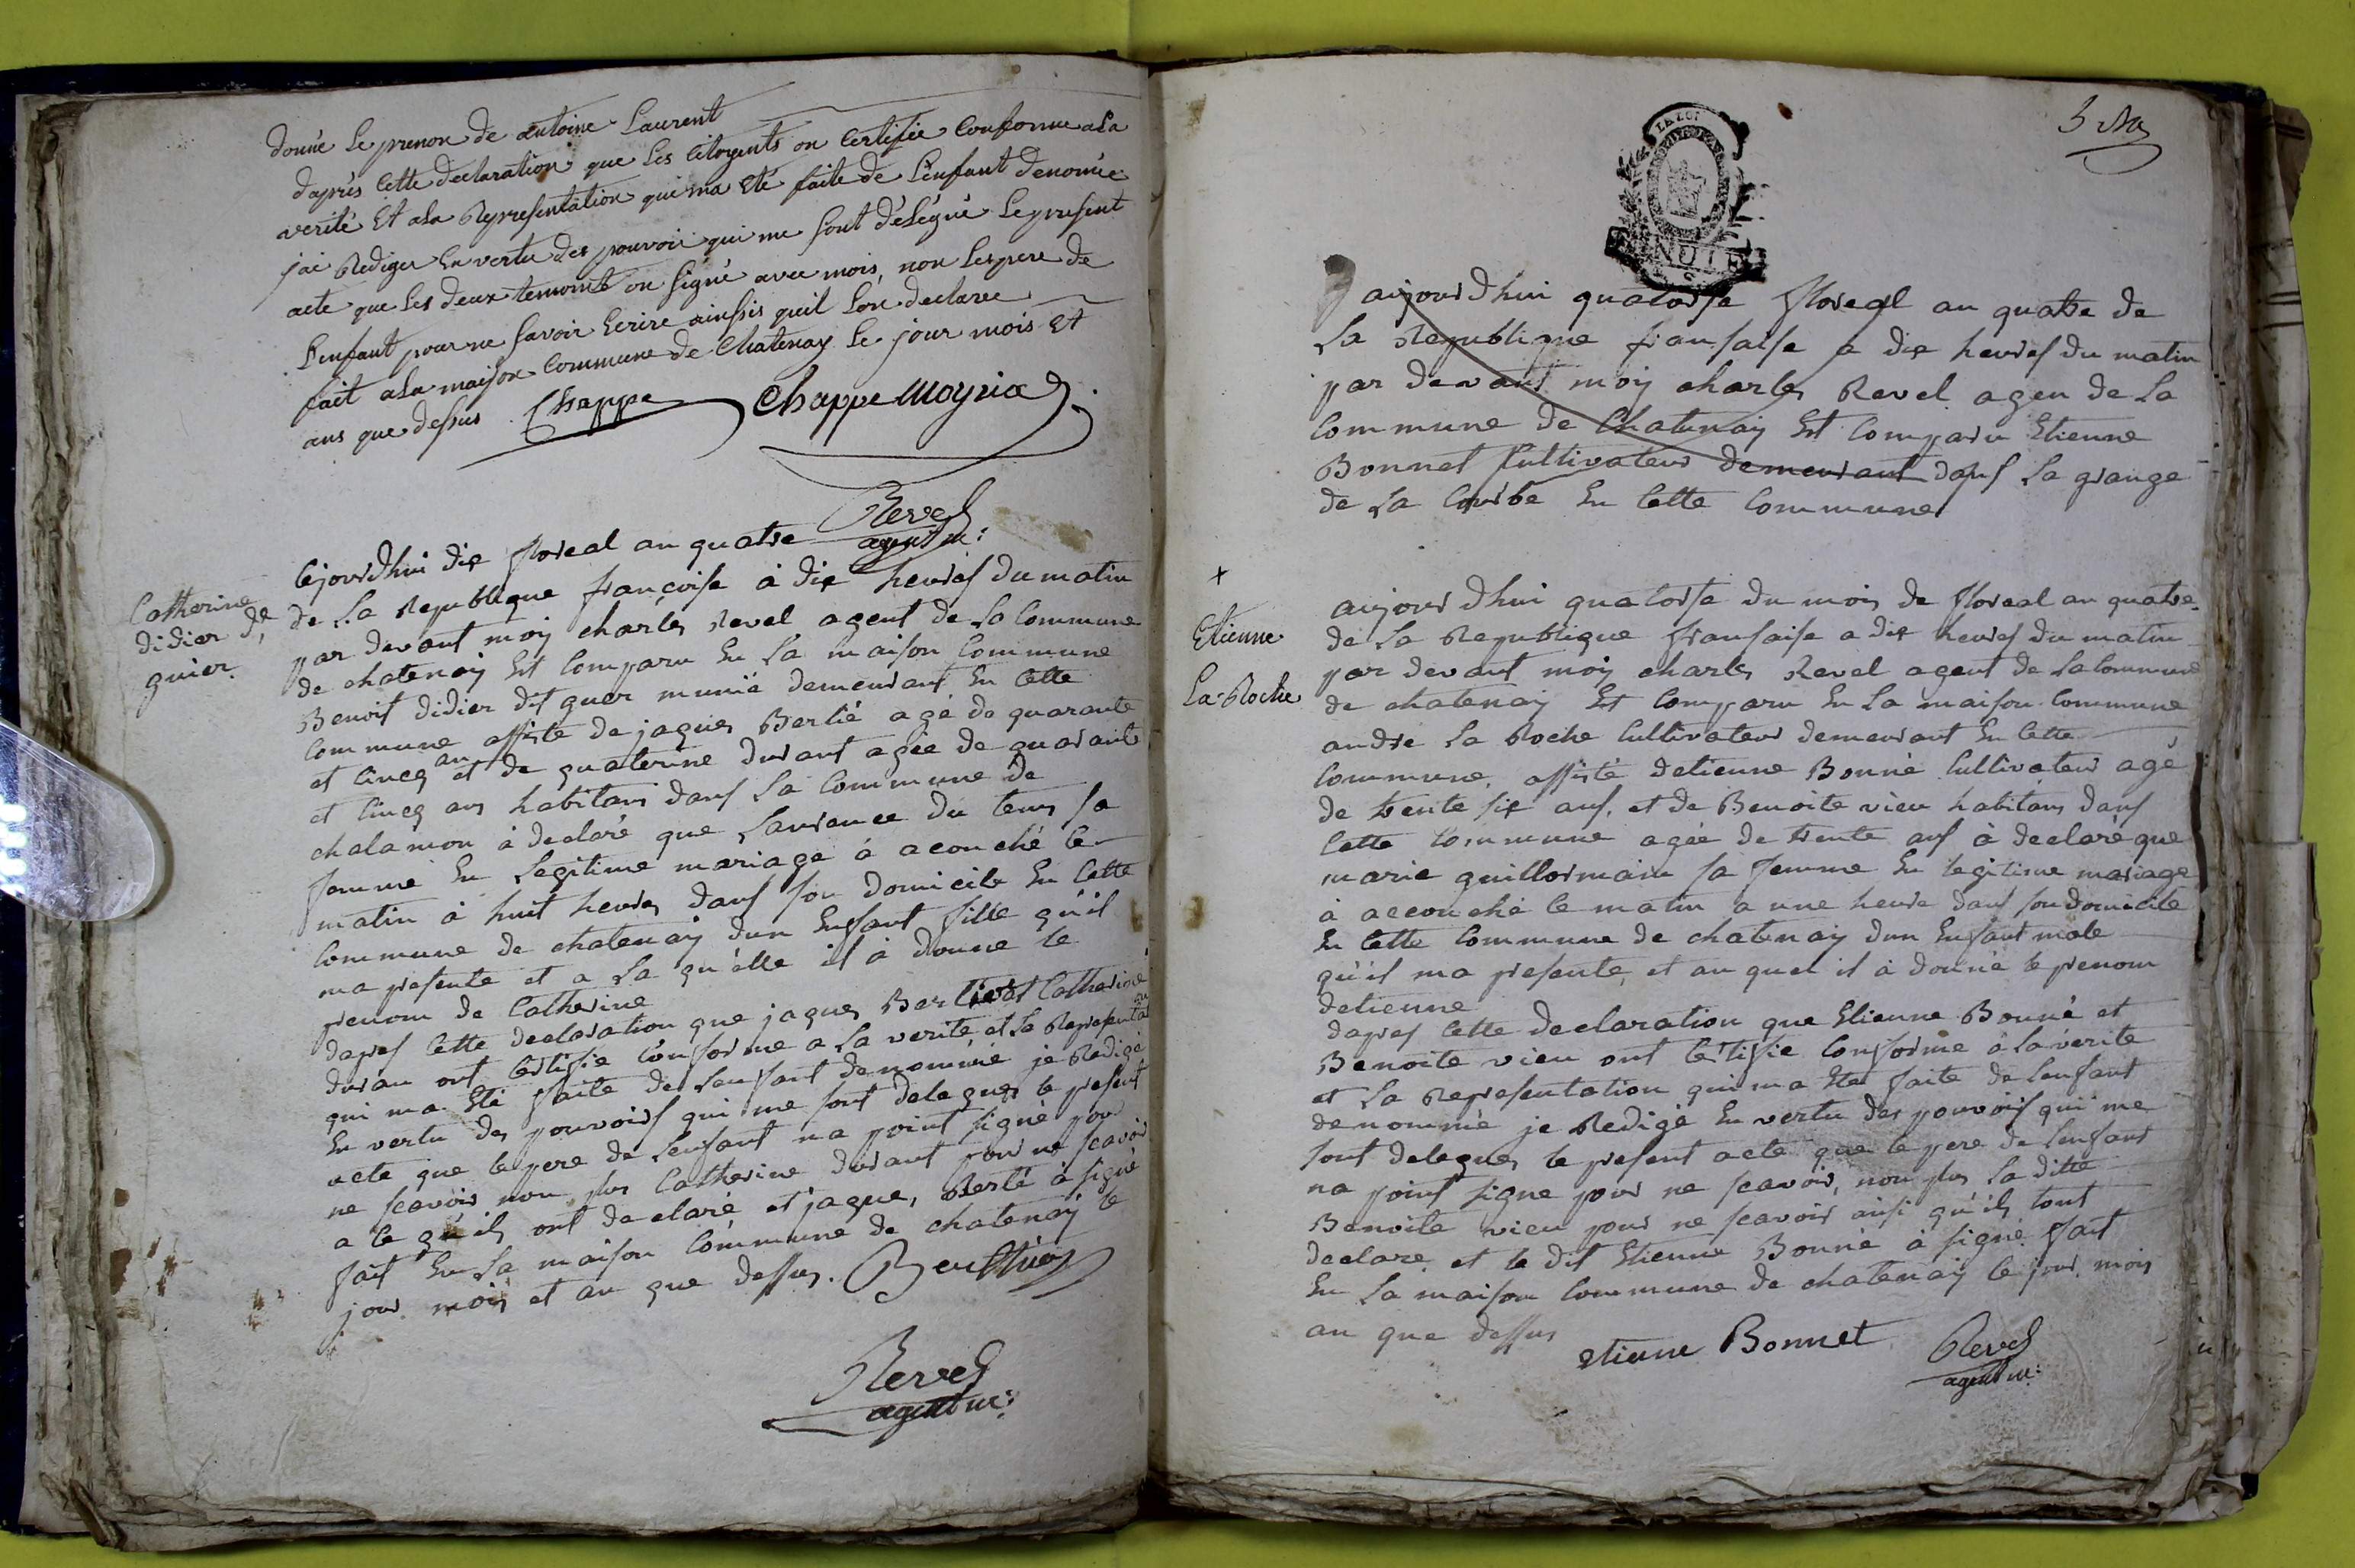 donné le prenon de antoine Laurent
daprès cette declaration que les citoyents on certifie conforme ala
verité et ala representation qui ma eté faite de lenfant denomée
jai rediger en vertu des pouvoir qui me sont délégué le present
acte que les deux temoint on signé avec mois, non les pere de
lenfant pour ne savoir ecrire ainssis quil lon declaree
fait ala maison commune de Chatenay le jour mois et
ans que dessus Chappe Chappe Moyria
Revel
agent m:
Catherine
didier dt
guier.
cejourdhui dix floreal an quatre
de la Republique françoise à dix heures du matin
par devant moy charles Revel agent de la commune
de chatenay est comparu en la maison commune
Benoit didier dit guer munié demeurant en cette
commune assisté de jaques Bertié agé de quarante
et cincq an et de quaterine durant agée de quarante
et cincq ans habitans dans la commune de
chalamon à declaré que laurance du tems sa
famme en legitime mariage à acouché ce
matin à huit heures dans son domicile en cette
commune de chatenay dun enfant fille qu'il
ma presente et a la qu'elle il à donne le
prenom de Catherine
dapres cette declaration que jaques Bertier et Catherine
duran ont certifie conforme a la verite et la Representation
qui ma eté faite de lenfant denommé je Redigé
en vertu des pouvoirs qui me sont delegues le present
acte que le pere de lenfant na point signé pour
ne scavoir non plus Catherine durant pour ne scavoir
a ce qu'ils ont declaré et jaques Berté à signé
fait en la maison commune de chatenay le
jour mois et an que dessus. Berthier
Revel
agent m:
LA LOI
aujourdhui quatorse floreal an quatre de
La Republique fransaise a dix heures du matin
par devant moy charles Revel agen de La
commune de Chatenay est comparu Etienne
Bonnet cultivateur demeurant dans la grange
de la Courbe en cette commune
x
Etienne
La Roche
aujourdhui quatorse du mois de floreal an quatre
de la Republique fransaise a dix heures du matin
par devant moy charles Revel agent de la commune
de chatenay est comparu en la maison commune
andre la Roche cultivateur demeurant en cette
commune, assisté detienne Bonné cultivateur agé
de trente six ans, et de Benoite vieu habitans dans
cette commune agée de trente ans à declaré que
marie guillormain sa femme en legitime mariage
à accouché ce matin a une heure dans son domicile
en cette commune de chatenay dun enfant male
qu'il ma presente, et au quel il à donné le prenom
detienne
dapres cette declaration que Etienne Bonné et
Benoite vieu ont certifie conforme à la verite
et la Representation qui ma ete faite de lenfant
denommé je Redigé en vertu des pouvoirs qui me
sont delegues le present acte que le pere de lenfant
na point signe pour ne scavoir, non plus la ditte
Benoite vieu pour ne scavoir ainsi qu'ils lont
declare et le dit Etienne Bonné à signé fait
en la maison commune de chatenay le jour, mois
an que dessus
etienne Bonnet Revel
agent m: